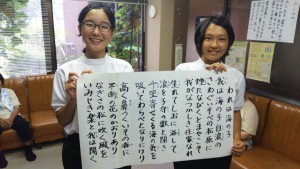 われは海の子
我は海の子白浪の
さわぐいそべの松原に
煙たなびくとまやこそ
我がなつかしき住家なれ
生れてしおに浴して
浪を子守の歌と聞き
千里寄せくる海の気を
吸いてわらべとなりにけり
高く鼻つくいその香に
不断の花のかおりあり
なぎさの松に吹く風を
いみじき楽と我は聞く